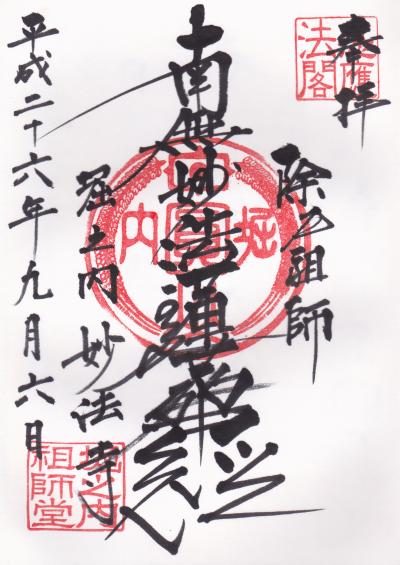 奉拝
除厄祖師
南無妙法蓮華経
堀之内
妙法寺
平成二十六年九月六日
堀之内
祖師堂